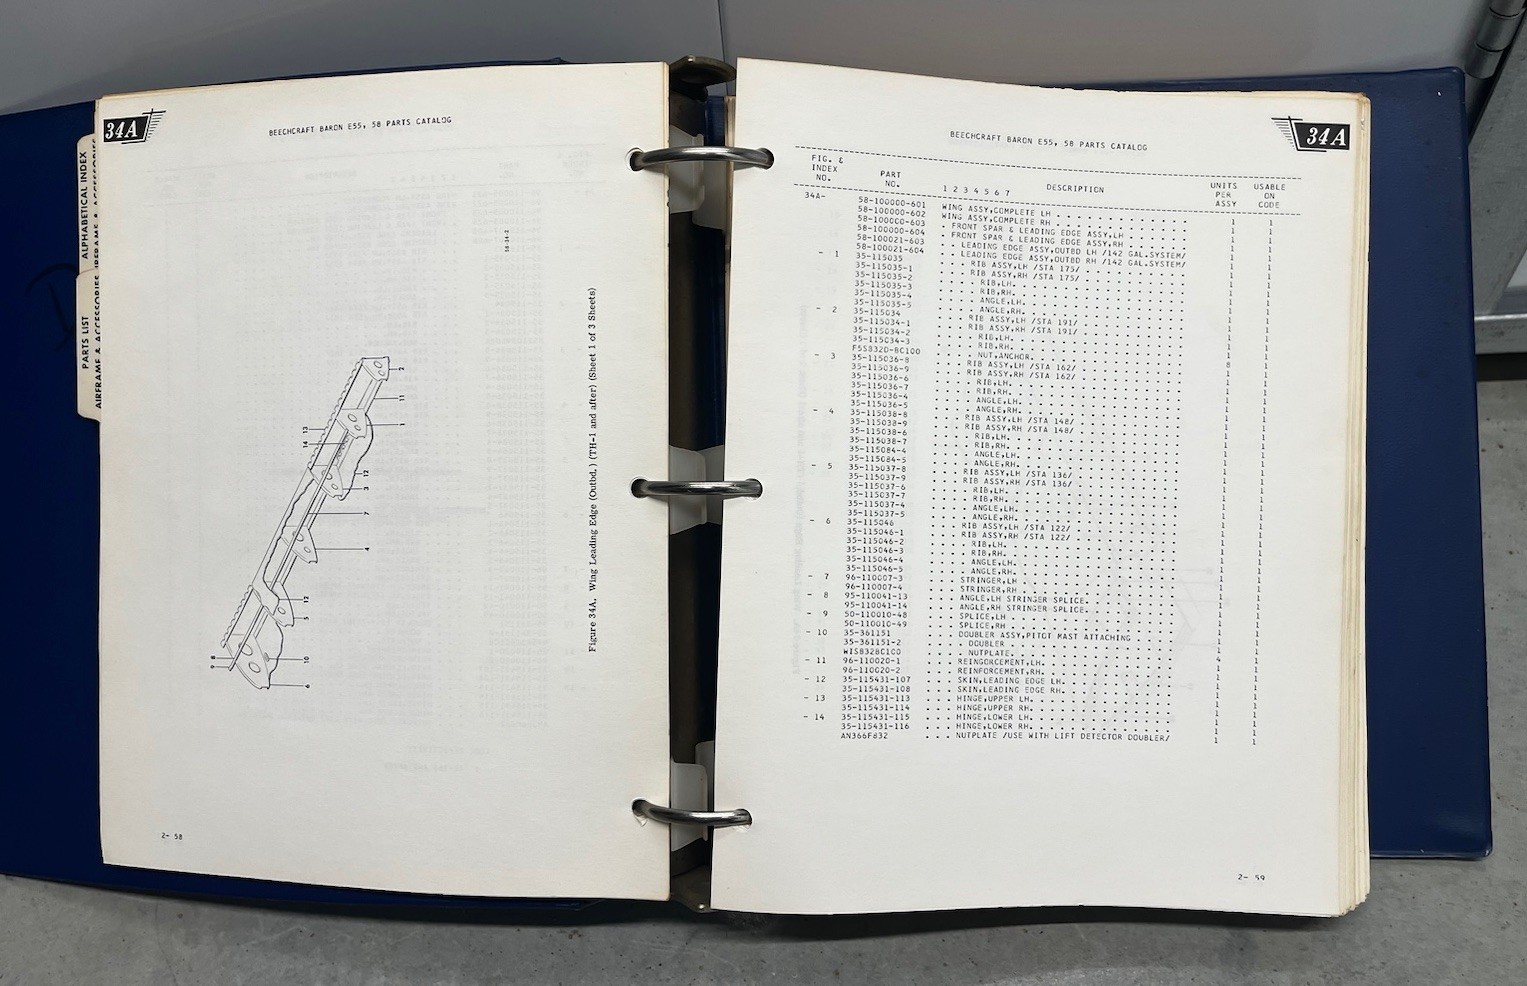 34A
BEECHCRAFT BARON E55, 58 PARTS CATALOG
ALPHABETICAL INDEX
PARTS LIST
AIRFRAME & ACCESSORIES
58-34-2
2
11
1
13
14
12
3
7
4
12
5
8
9
10
6
Figure 34A. Wing Leading Edge (Outbd.) (TH-1 and after) (Sheet 1 of 3 Sheets)
2- 58
34A
BEECHCRAFT BARON E55, 58 PARTS CATALOG
FIG. & INDEX NO. PART NO. 1 2 3 4 5 6 7 DESCRIPTION UNITS PER ASSY USABLE ON CODE
34A- 58-100000-601 WING ASSY,COMPLETE LH 1 1
58-100000-602 WING ASSY,COMPLETE RH 1 1
58-100000-603 . FRONT SPAR & LEADING EDGE ASSY,LH 1 1
58-100000-604 . FRONT SPAR & LEADING EDGE ASSY,RH 1 1
58-100021-603 . . LEADING EDGE ASSY,OUTBD LH /142 GAL.SYSTEM/ 1 1
58-100021-604 . . LEADING EDGE ASSY,OUTBD RH /142 GAL.SYSTEM/ 1 1
- 1 35-115035 . . . RIB ASSY,LH /STA 175/ 1 1
35-115035-1 . . . RIB ASSY,RH /STA 175/ 1 1
35-115035-2 . . . . RIB,LH 1 1
35-115035-3 . . . . RIB,RH 1 1
35-115035-4 . . . . ANGLE,LH 1 1
35-115035-5 . . . . ANGLE,RH 1 1
- 2 35-115034 . . . RIB ASSY,LH /STA 191/ 1 1
35-115034-1 . . . RIB ASSY,RH /STA 191/ 1 1
35-115034-2 . . . . RIB,LH 1 1
35-115034-3 . . . . RIB,RH 1 1
F5S832D-BC100 . . . . NUT,ANCHOR 8 1
- 3 35-115036-8 . . . RIB ASSY,LH /STA 162/ 1 1
35-115036-9 . . . RIB ASSY,RH /STA 162/ 1 1
35-115036-6 . . . . RIB,LH 1 1
35-115036-7 . . . . RIB,RH 1 1
35-115036-4 . . . . ANGLE,LH 1 1
35-115036-5 . . . . ANGLE,RH 1 1
- 4 35-115038-8 . . . RIB ASSY,LH /STA 148/ 1 1
35-115038-9 . . . RIB ASSY,RH /STA 148/ 1 1
35-115038-6 . . . . RIB,LH 1 1
35-115038-7 . . . . RIB,RH 1 1
35-115084-4 . . . . ANGLE,LH 1 1
35-115084-5 . . . . ANGLE,RH 1 1
- 5 35-115037-8 . . . RIB ASSY,LH /STA 136/ 1 1
35-115037-9 . . . RIB ASSY,RH /STA 136/ 1 1
35-115037-6 . . . . RIB,LH 1 1
35-115037-7 . . . . RIB,RH 1 1
35-115037-4 . . . . ANGLE,LH 1 1
35-115037-5 . . . . ANGLE,RH 1 1
- 6 35-115046 . . . RIB ASSY,LH /STA 122/ 1 1
35-115046-1 . . . RIB ASSY,RH /STA 122/ 1 1
35-115046-2 . . . . RIB,LH 1 1
35-115046-3 . . . . RIB,RH 1 1
35-115046-4 . . . . ANGLE,LH 1 1
35-115046-5 . . . . ANGLE,RH 1 1
- 7 96-110007-3 . . . STRINGER,LH 1 1
96-110007-4 . . . STRINGER,RH 1 1
- 8 95-110041-13 . . . ANGLE,LH STRINGER SPLICE 1 1
95-110041-14 . . . ANGLE,RH STRINGER SPLICE 1 1
- 9 50-110010-48 . . . SPLICE,LH 1 1
50-110010-49 . . . SPLICE,RH 1 1
- 10 35-361151 . . . DOUBLER ASSY,PITOT MAST ATTACHING 1 1
35-361151-2 . . . . DOUBLER 1 1
WIS832BC100 . . . . NUTPLATE 4 1
- 11 96-110020-1 . . . REINGORCEMENT,LH 1 1
96-110020-2 . . . REINFORCEMENT,RH 1 1
- 12 35-115431-107 . . . SKIN,LEADING EDGE LH 1 1
35-115431-108 . . . SKIN,LEADING EDGE RH 1 1
- 13 35-115431-113 . . . HINGE,UPPER LH 1 1
35-115431-114 . . . HINGE,UPPER RH 1 1
- 14 35-115431-115 . . . HINGE,LOWER LH 1 1
35-115431-116 . . . HINGE,LOWER RH 1 1
AN366F832 . . . NUTPLATE /USE WITH LIFT DETECTOR DOUBLER/ 1 1
2- 59